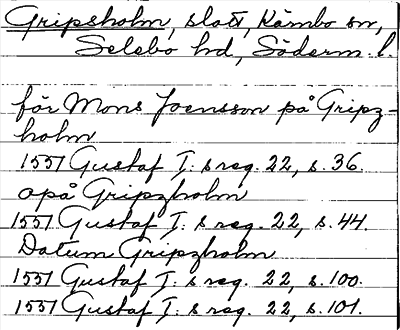 Gripsholm, slott, Kärnbo sn,
Selebo hd, Söderm. l.
för Mons Joensson på Gripz-
holm
1551 Gustaf I:s reg. 22, s. 36.
opå Gripzholm
1551 Gustaf I:s reg. 22, s. 44.
Datum Gripzholm
1551 Gustaf I:s reg. 22, s. 100.
1551 Gustaf I:s reg. 22, s. 101.